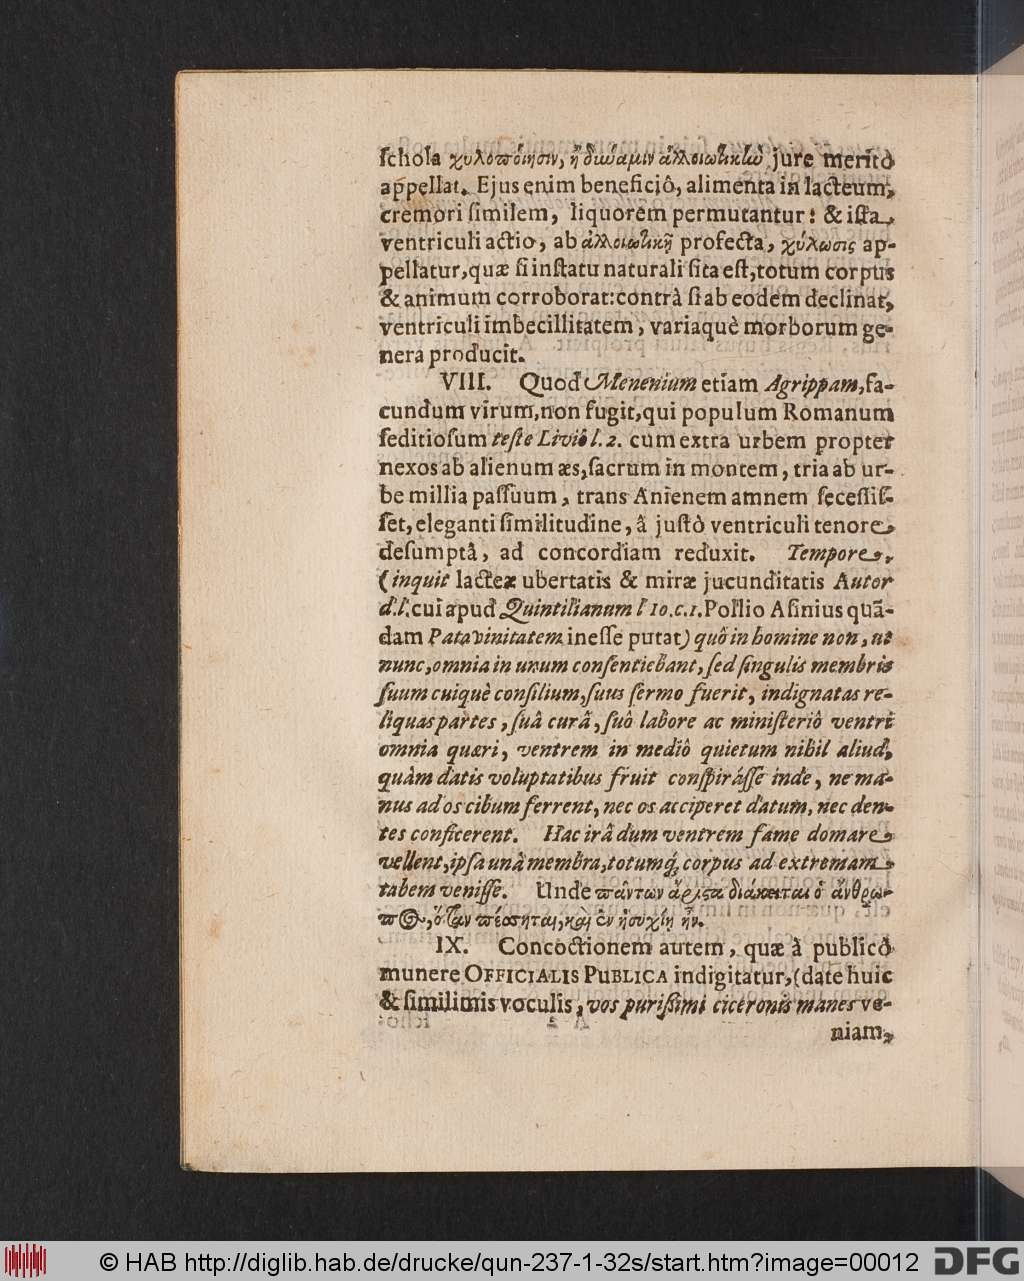 ſchola χυλοποίησιν, ἢ δύναμιν ἀλλοιωτικὴν jure meritò
appellat. Ejus enim beneficiô, alimenta in lacteum,
cremori ſimilem, liquorem permutantur: & iſta
ventriculi actio, ab ἀλλοιωτικῇ profecta, χύλωσις ap-
pellatur, quæ ſi in ſtatu naturali ſita eſt, totum corpus
& animum corroborat: contrà ſi ab eodem declinat,
ventriculi imbecillitatem, variaquè morborum ge-
nera producit.
VIII. Quod Menenium etiam Agrippam, fa-
cundum virum, non fugit, qui populum Romanum
ſeditioſum teſte Liviô l. 2. cum extra urbem propter
nexos ab alienum æs, ſacrum in montem, tria ab ur-
be millia paſſuum, trans Anienem amnem ſeceſſiſ-
ſet, eleganti ſimilitudine, â juſtô ventriculi tenore
deſumptâ, ad concordiam reduxit. Tempore,
(inquit lacteæ ubertatis & miræ jucunditatis Autor
d. l. cui apud Quintilianum l 10. c. 1. Pollio Aſinius quā-
dam Patavinitatem ineſſe putat) quô in homine non, ut
nunc, omnia in unum conſentiebant, ſed ſingulis membris
ſuum cuiquè conſilium, ſuus ſermo fuerit, indignatas re-
liquas partes, ſuâ curâ, ſuô labore ac miniſteriô ventri
omnia quæri, ventrem in mediô quietum nihil aliud,
quàm datis voluptatibus fruit conſpiráſſe inde, ne ma-
nus ad os cibum ferrent, nec os acciperet datum, nec den-
tes conficerent. Hac irâ dum ventrem fame domare
vellent, ipſa unà membra, totumq́; corpus ad extremam
tabem veniſſe. Unde πάντων ἄριστα διάκειται ὁ ἄνθρω-
πος, ὅταν πέσσηται, καὶ ἐν ἡσυχίῃ ἦν.
IX. Concoctionem autem, quæ à publicô
munere OFFICIALIS PUBLICA indigitatur, (date huic
& ſimilimis voculis, vos puriſſimi ciceronis manes ve-
niam,
© HAB http://diglib.hab.de/drucke/qun-237-1-32s/start.htm?image=00012
DFG